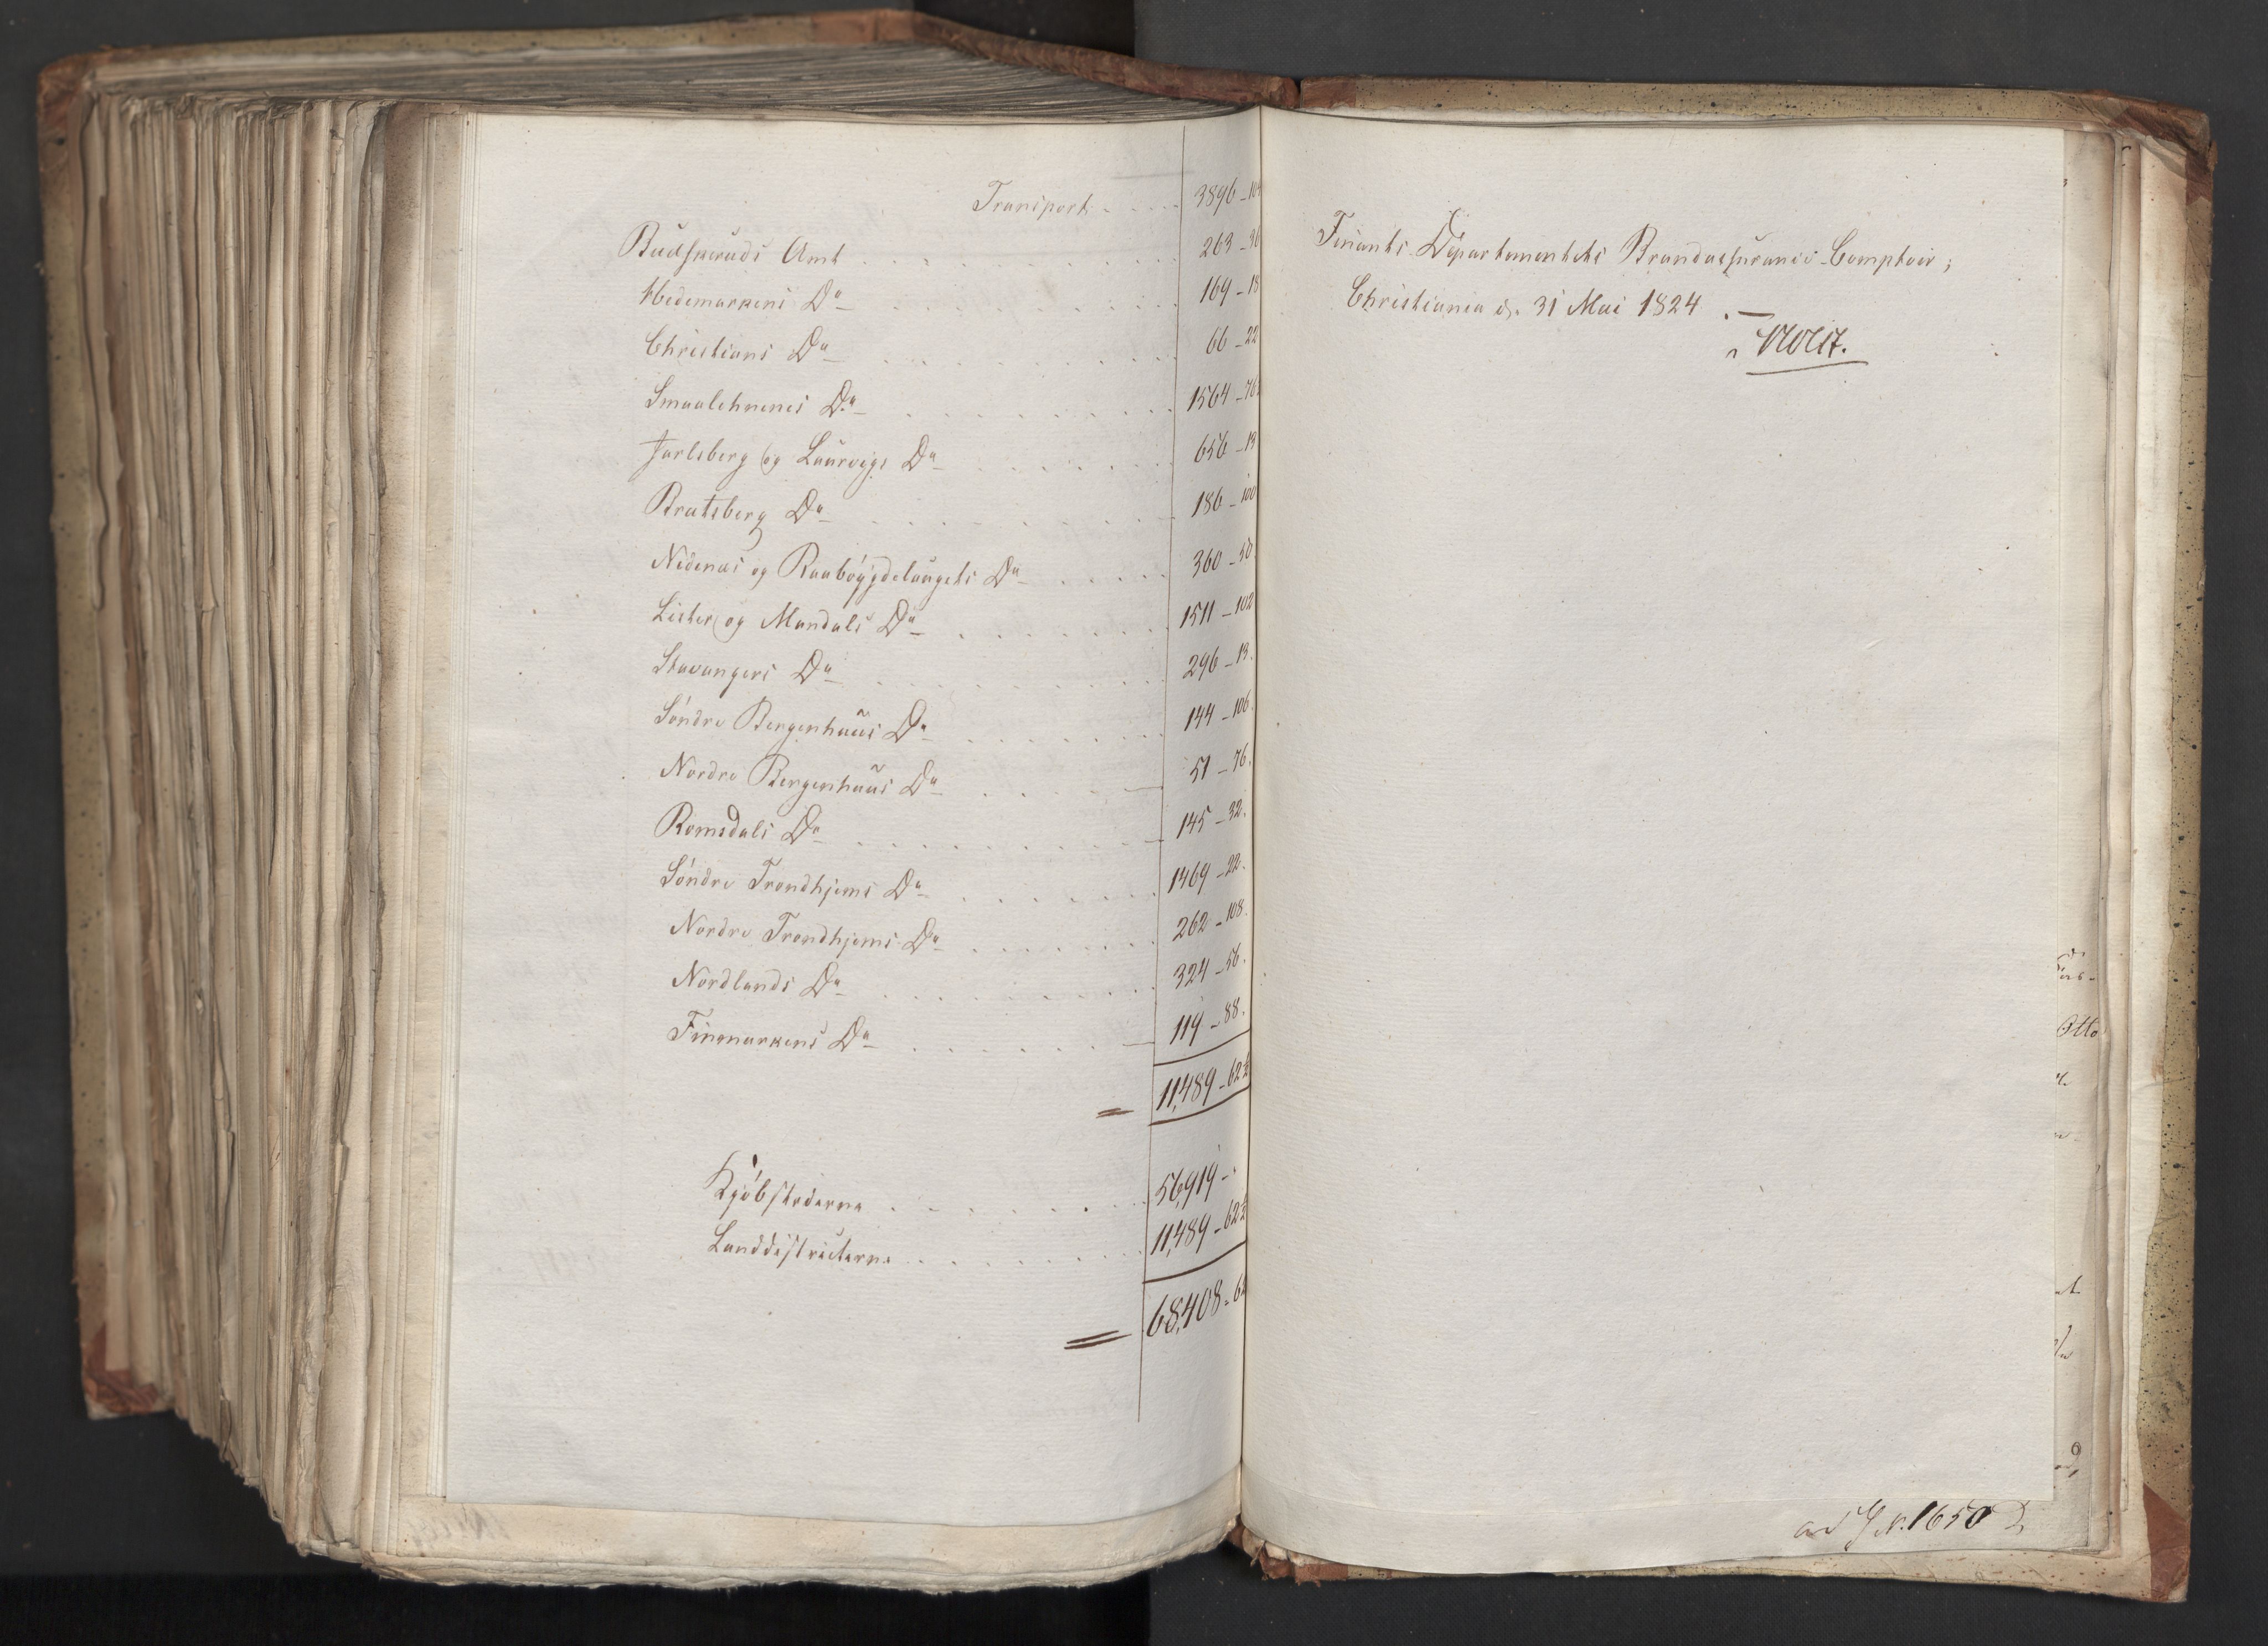 Transport . . . . 3896 – 10
Budskeruds Amt . . . 263 – 36
Hedemarkens Do . . . 169 – 18
Christians Do . . . 66 – 22
Smaalehnenes Do . . . 1564 – 76
Jarlsberg og Laurvigs Do . . . 656 – 13
Bratsberg Do . . . 186 – 100
Nedenæs og Raabøygdelaugets Do . . . 360 – 50
Lister og Mandals Do . . . 1511 – 102
Stavangers Do . . . 296 – 13.
Søndre Bergenhuus Do . . . 144 – 106.
Nordre Bergenhuus Do . . . 51 – 76.
Romsdals Do . . . 145 – 32.
Søndre Trondhjems Do . . . 1469 – 22.
Nordre Trondhjems Do . . . 262 – 108.
Nordlands Do . . . 324 – 56.
Finmarkens Do . . . 119 – 88.
= 11,489 – 62½
Kjøbstæderne . . . 56,919 – "
Landdistricterne . . . 11,489 – 62½
= 68,408 – 62
Finants-Departementets Brandassurance-Comptoir;
Christiania d. 31 Mai 1824. —
Holst.
ad J. N. 1650
Otto